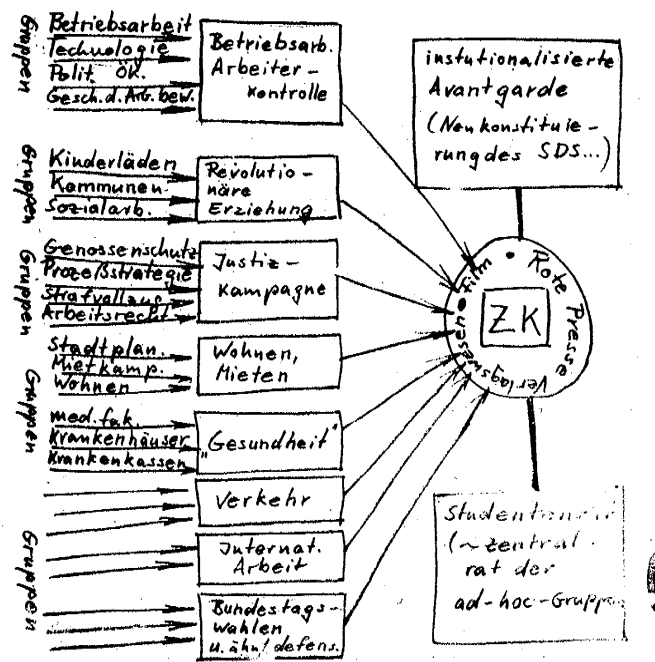 Gruppen
Betriebsarbeit
Technologie
Polit. Ök.
Gesch. d. Arb. bew.
Betriebsarb.
Arbeiter-
kontrolle
Gruppen
Kinderläden
Kommunen
Sozialarb.
Revolutio-
näre
Erziehung
Gruppen
Genossenschutz
Prozeßstrategie
Strafvollzug
Arbeitsrecht
Justiz-
kampagne
Gruppen
Stadtplan.
Mietkamp.
Wohnen
Wohnen,
Mieten
med. fak.
Krankenhäuser
Krankenkassen
„Gesundheit"
Verkehr
Gruppen
Internat.
Arbeit
Bundestags-
wahlen
u. ähnl defens.
instutionalisierte
Avantgarde
(Neukonstituie-
rung des SDS...)
Film • Rote Presse
Verlagswesen •
ZK
(~ zentral
rat der
ad-hoc-Gruppen